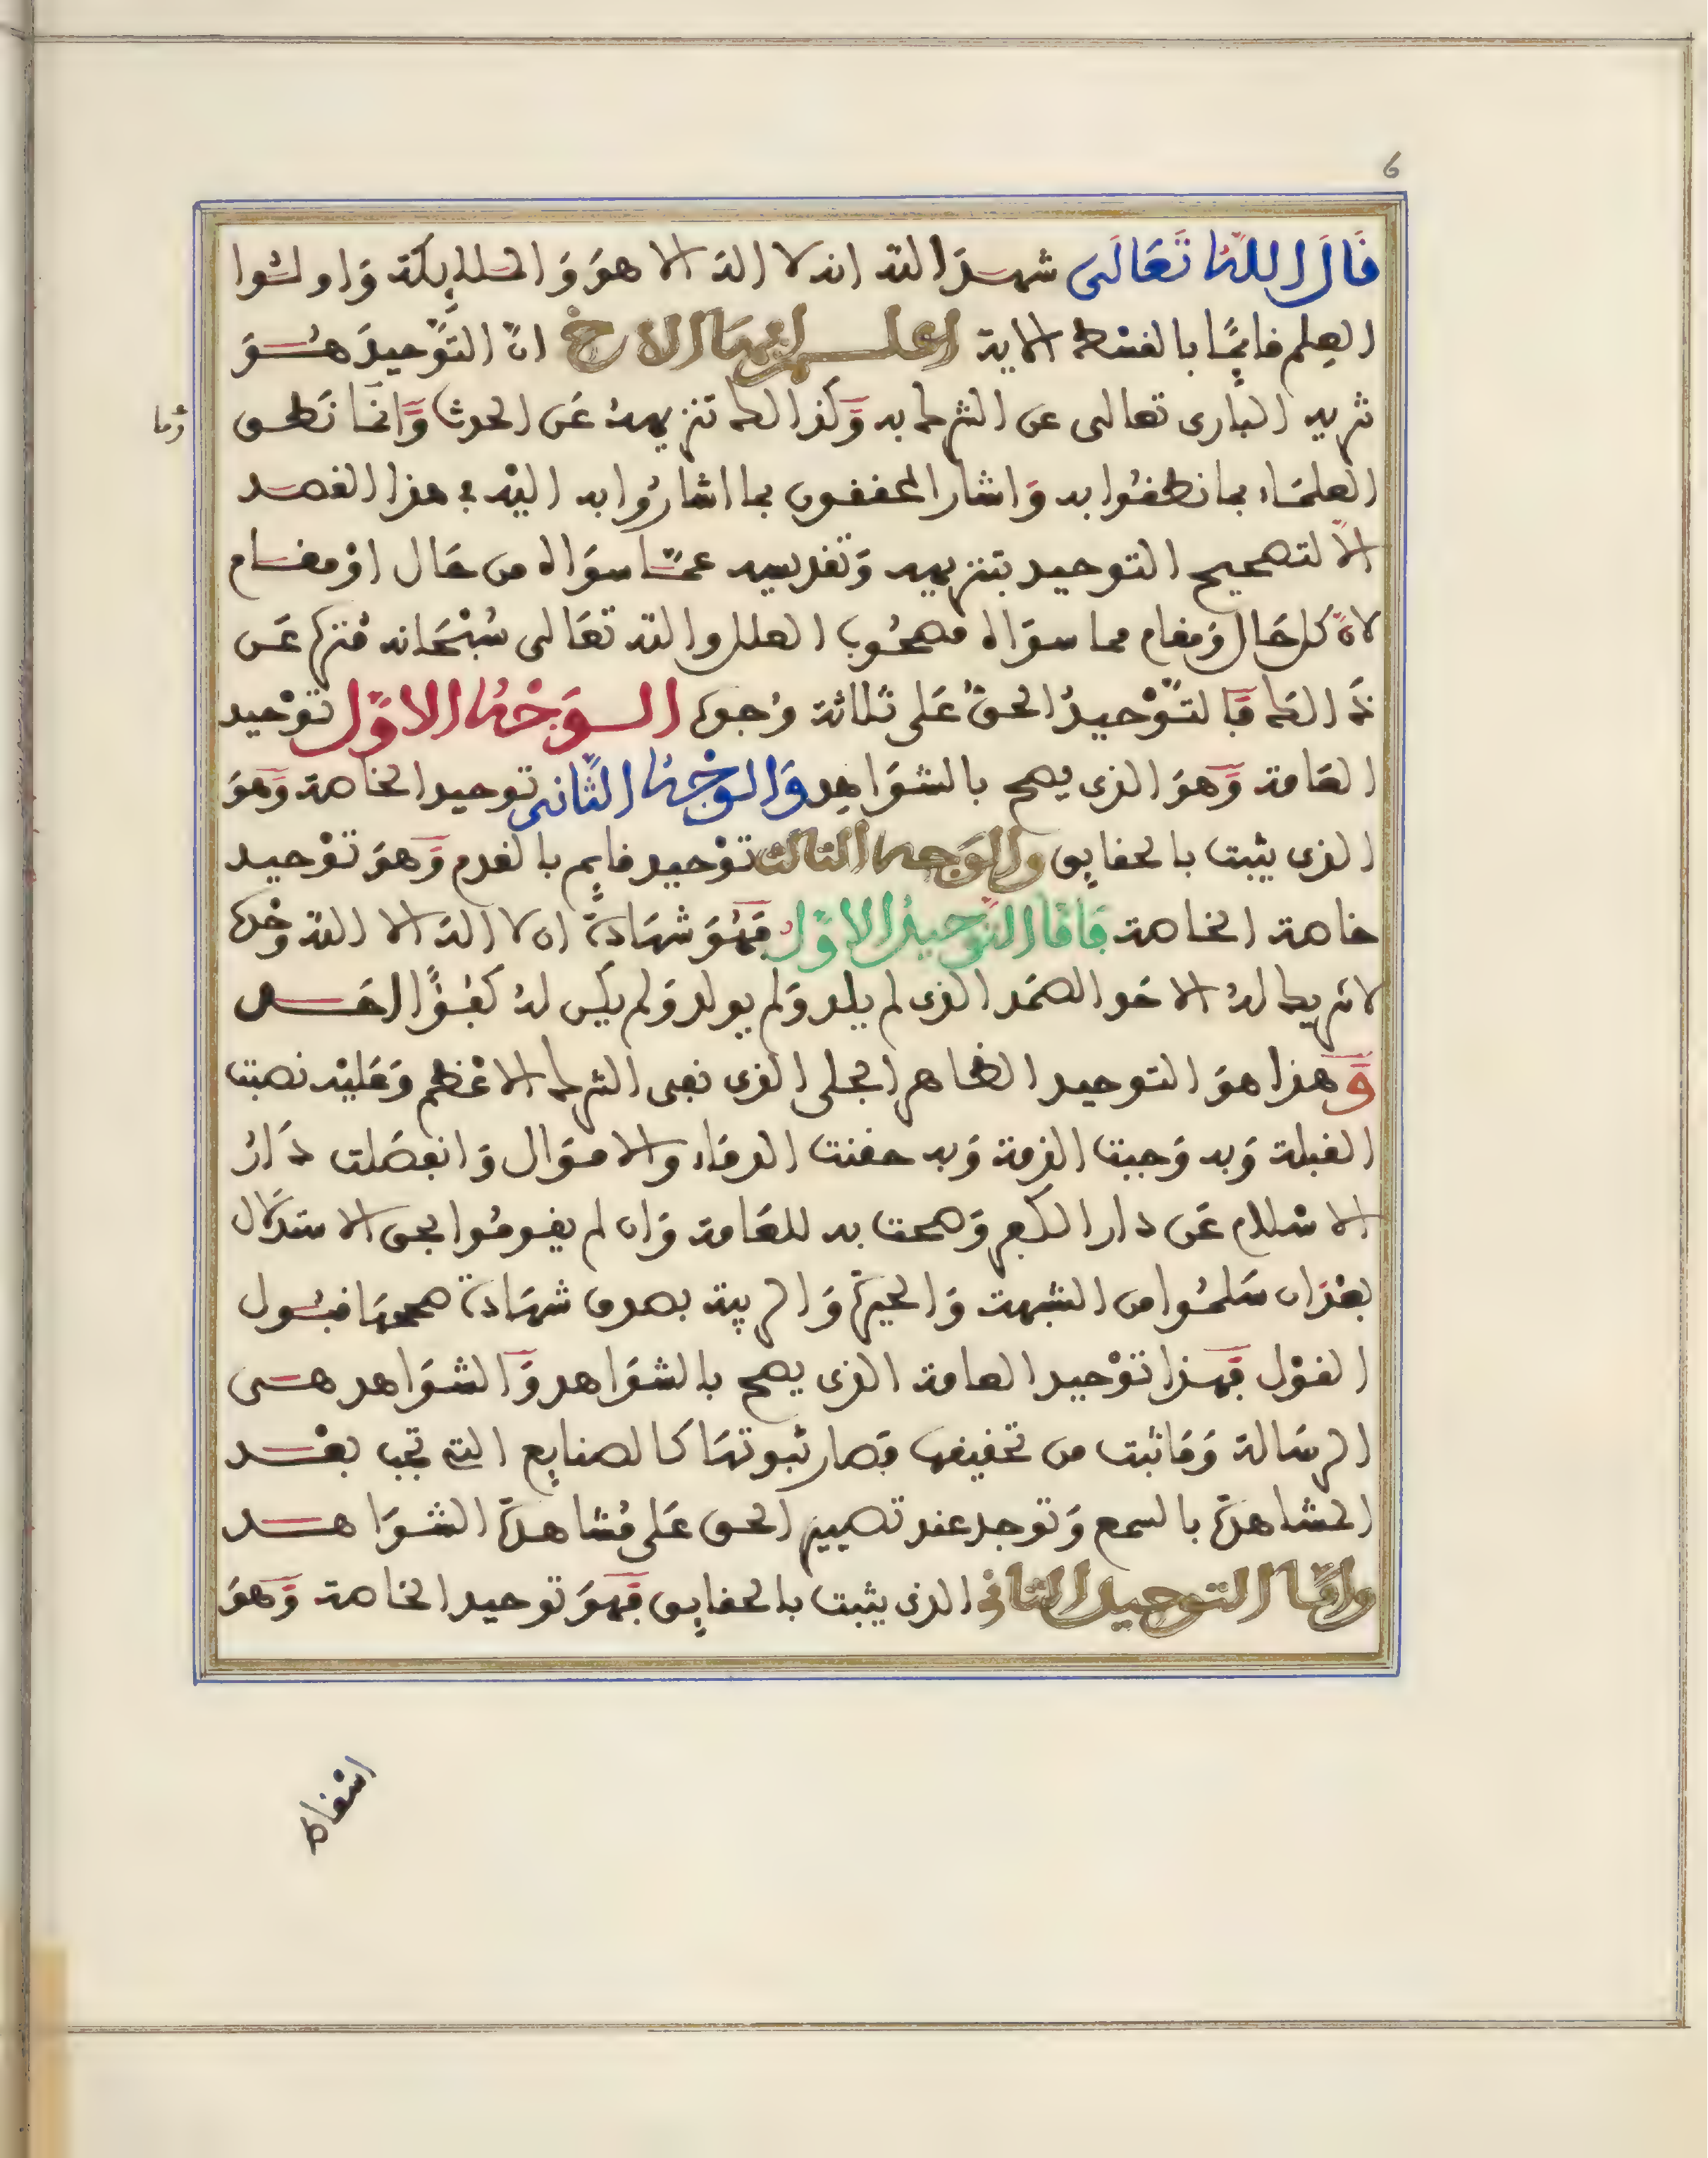 6
قَالَ اللهُ تَعَالَى شهدَ الله انه لا اله الا هوَ وَالملايِكة وَاولُوا
العِلم قايمًا بالقسْط الاية اعلم ايها الاخ انّ التَّوْحيدَ هُوَ
تنزيه البارى تعالى عن الشرك به وَكذالك تنزيههُ عَن الحدث وَانمَا نَطق
وما
العلمَاء بما نطقُوا به وَاشار المحققون بما اشارُوا به اليْه في هذا القصد
الاّ لتصحيح التوحيد بتنزيهه وَتقديسه عمّا سوَاه من حَال اوْ مقام
لانّ كل حَال وَمقام مما سوَاه مصحُوب العلل والله تعَالى سُبْحَانه مُنزه عَن
ذَالك فَالتَّوْحيدُ الحقُّ عَلى ثلاثة وُجوه الوَجْهُ الاوّل توْحيد
العَامة وَهوَ الذى يصح بالشوَاهِد وَالوَجْهُ الثَّانى توحيد الخاصة وَهوَ
الذى يثبت بالحقايِق والوَجه الثالث توْحيد قايِم بالقدم وَهوَ توْحيد
خاصة الخاصة فَامَّا التَّوحيدُ الاوّلُ فَهُوَ شهَادةُ ان لا اله الا الله وَحْده
لا شريك لهُ الاحَد الصمَد الذى لم يلد وَلم يولد وَلم يكن لهُ كفُؤًا احَد
وَهذا هوَ التوحيد الظاهر الجلى الذى نفى الشرك الاعْظم وَعَليْه نصبت
القبلة وَبه وَجبت الذمة وَبه حقنت الدمَاء والاموَال وَانفصَلت دَارُ
الاسْلام عَن دار الكفر وَصحت به للعَامة وَان لم يقومُوا بحق الاستدْلال
بعْدَ ان سَلمُوا من الشبهة وَالحيرَة وَالريبة بصدق شهَادة صححهَا قبُول
القوْل فَهذا توْحيد العامة الذى يصح بالشوَاهد وَالشوَاهد هى
الرسَالة وَمَا ثبت من تحقيقها فصار ثبوتهَا كالصنايِع التي تجب بعْد
المشاهدَة بالسمع وَتوجد عند تبصير الحق عَلى مُشاهدَة الشوَاهد
وامَّا التوحيد الثانى الذى يثبت بالحقايِق فَهوَ توحيد الخاصة وَهوَ
اسْقاط